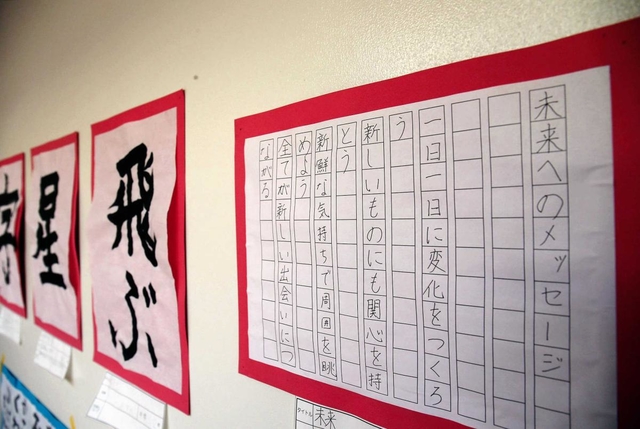 未来へのメッセージ
一日一日に変化をつくろ
う
新しいものにも関心を持
とう
新鮮な気持ちで周囲を眺
めよう
全てが新しい出会いにつ
ながる
タイトル
未来
飛ぶ
星